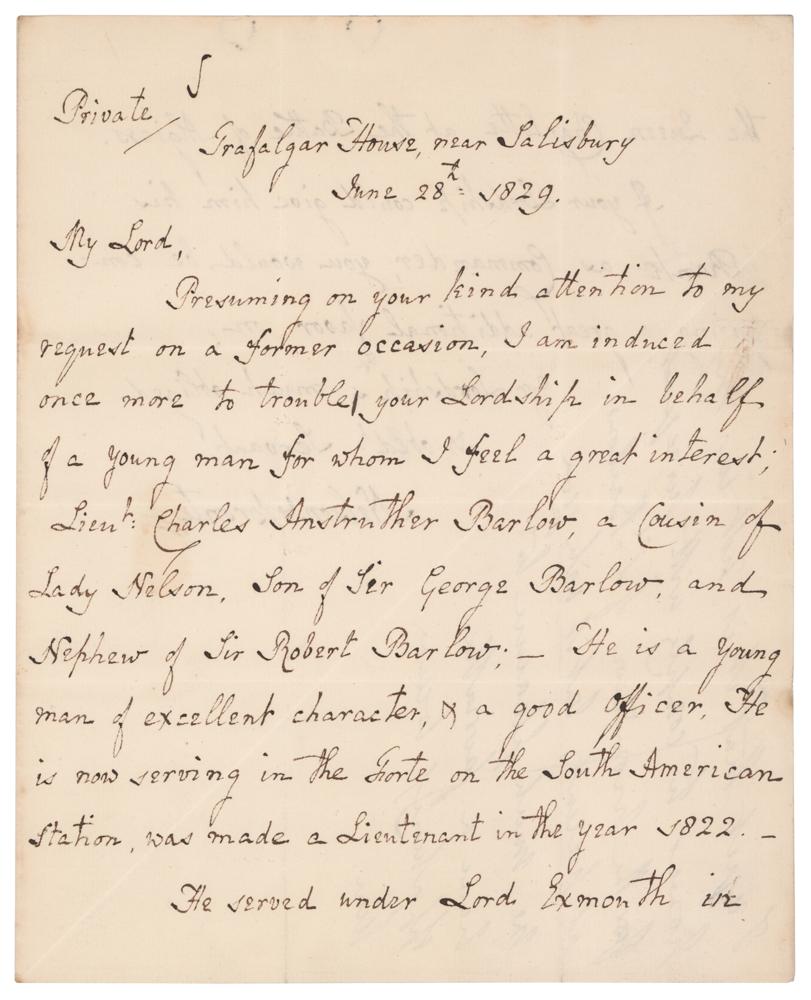 Private
Trafalgar House, near Salisbury
June 28th: 1829.
My Lord,
Presuming on your kind attention to my
request on a former occasion, I am induced
once more to trouble your Lordship in behalf
of a young man for whom I feel a great interest;
Lieut: Charles Anstruther Barlow, a Cousin of
Lady Nelson, Son of Sir George Barlow, and
Nephew of Sir Robert Barlow; — He is a young
man of excellent character, & a good officer, He
is now serving in the Forte on the South American
Station, was made a Lieutenant in the year 1822. —
He served under Lord Exmouth in